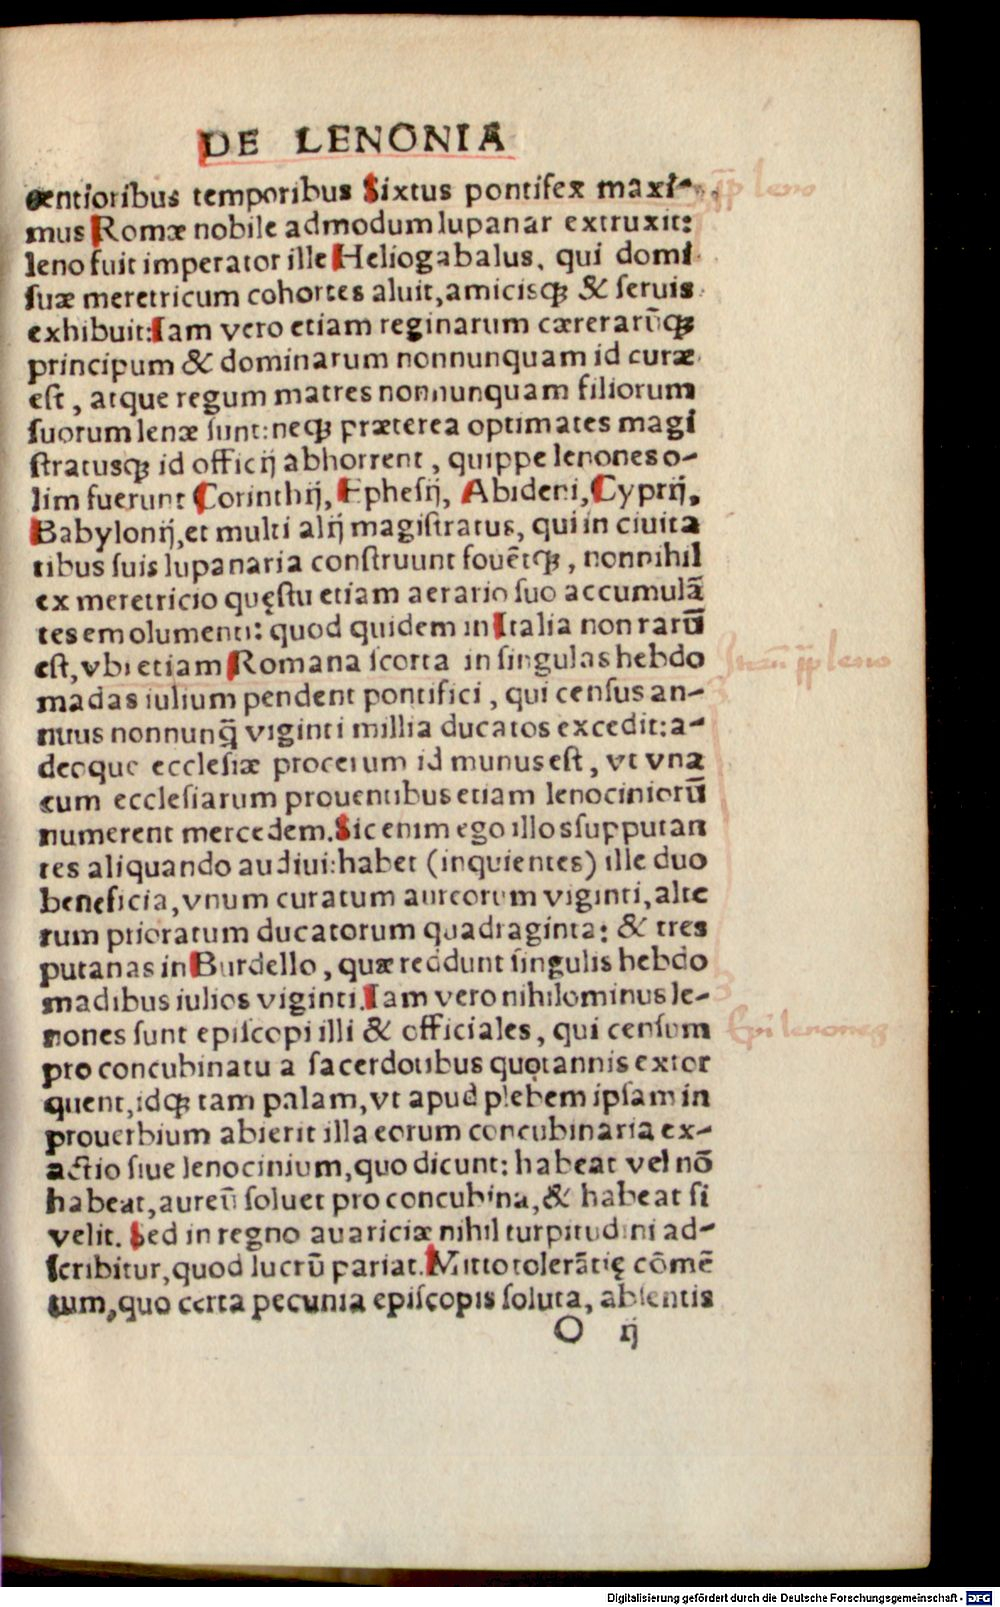 DE LENONIA
centioribus temporibus Sixtus pontifex maxi-
mus Romæ nobile admodum lupanar extruxit:
leno fuit imperator ille Heliogabalus, qui domi
ſuæ meretricum cohortes aluit, amicisqꝫ & ſeruis
exhibuit: Iam vero etiam reginarum cærerarūqꝫ
principum & dominarum nonnunquam id curæ
eſt, atque regum matres nonnunquam filiorum
ſuorum lenæ ſunt: neqꝫ præterea optimates magi
ſtratusqꝫ id officij abhorrent, quippe lenones o-
lim fuerunt Corinthij, Epheſij, Abideni, Cyprij,
Babylonij, et multi alij magiſtratus, qui in ciuita
tibus ſuis lupanaria conſtruunt fouẽtqꝫ, nonnihil
ex meretricio quęſtu etiam aerario ſuo accumulã
tes emolumenti: quod quidem in Italia non rarū
eſt, vbi etiam Romana ſcorta in ſingulas hebdo
madas iulium pendent pontifici, qui cenſus an-
nuus nonnunq̃ viginti millia ducatos excedit: a-
deoque eccleſiæ procerum id munus eſt, vt vna
cum eccleſiarum prouentibus etiam lenociniorū
numerent mercedem. Sic enim ego illos ſupputan
tes aliquando audiui: habet (inquientes) ille duo
beneficia, vnum curatum aureorum viginti, alte
rum prioratum ducatorum quadraginta: & tres
putanas in Burdello, quæ reddunt ſingulis hebdo
madibus iulios viginti. Iam vero nihilominus le-
nones ſunt epiſcopi illi & officiales, qui cenſum
pro concubinatu a ſacerdotibus quotannis extor
quent, idqꝫ tam palam, vt apud plebem ipſam in
prouerbium abierit illa eorum concubinaria ex-
actio ſiue lenocinium, quo dicunt: habeat vel nõ
habeat, aureū ſoluet pro concubina, & habeat ſi
velit. Sed in regno auariciæ nihil turpitudini ad-
ſcribitur, quod lucrū pariat. Mitto tolerãtię cõmẽ
tum, quo certa pecunia epiſcopis ſoluta, abſentis
O ij
leno
leno
Digitalisierung gefördert durch die Deutsche Forschungsgemeinschaft - DFG